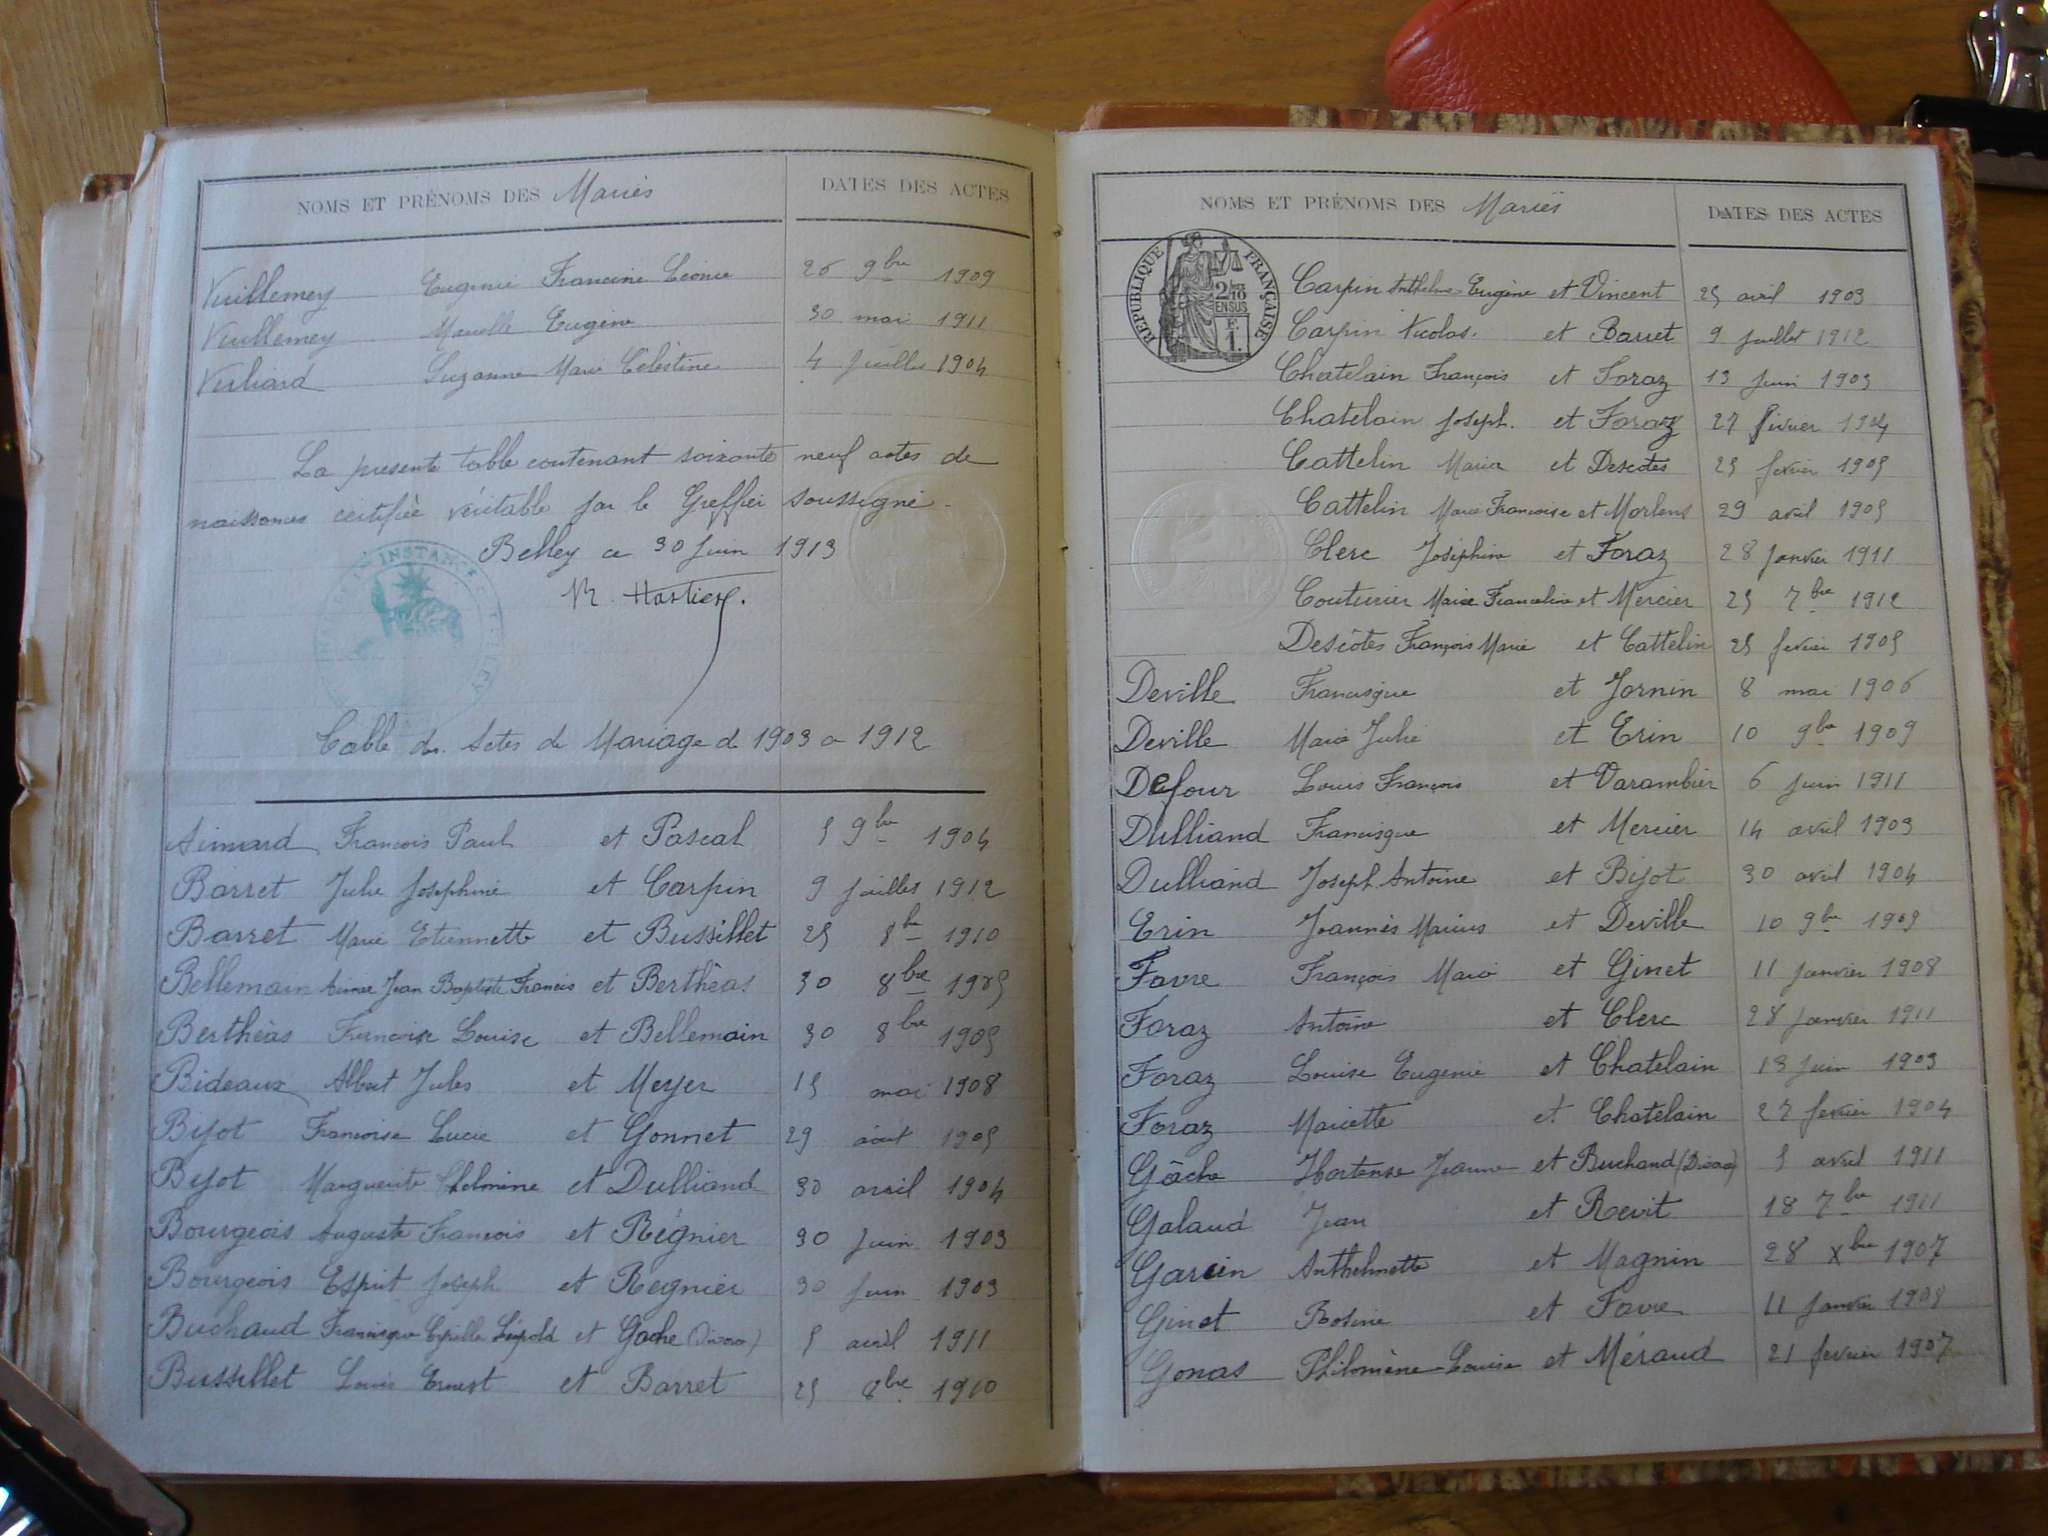 NOMS ET PRÉNOMS DES Mariés DATES DES ACTES
Vuillemey Eugenie Francine Léonie 26 9bre 1909
Vuillemey Marcelle Eugénie 30 mai 1911
Vulliard Suzanne Marie Célestine 4 Juillet 1904
La presente table contenant soixante neuf actes de
naissances certifiée véritable par le Greffier soussigné.
Belley ce 30 Juin 1913
Table des Actes de Mariage de 1903 a 1912
Aimard François Paul et Pascal 5 9bre 1904
Barret Julie Josephine et Carpin 9 Juillet 1912
Barret Marie Etiennette et Bussillet 25 8bre 1910
Bellemain Aimé Jean Baptiste Francis et Berthéas 30 8bre 1905
Berthéas Françoise Louise et Bellemain 30 8bre 1905
Bideaux Albert Jules et Meyer 15 mai 1908
Bijot Françoise Lucie et Gonnet 29 août 1905
Bijot Marguerite Philomine et Dulliand 30 avril 1904
Bourgeois Auguste François et Régnier 30 Juin 1903
Bourgeois Esprit Joseph et Regnier 30 Juin 1903
Buchaud Francisque Cyrille Léopold et Gache (Divorce) 5 avril 1911
Bussillet Louis Ernest et Barret 25 8bre 1910
NOMS ET PRÉNOMS DES Mariés DATES DES ACTES
RÉPUBLIQUE FRANÇAISE
2/10 EN SUS
F. 1.
Carpin Anthelme Eugène et Vincent 25 avril 1903
Carpin Nicolas. et Barret 9 Juillet 1912
Chatelain François et Foraz 13 Juin 1903
Chatelain Joseph. et Foraz 27 février 1904
Cattelin Maria et Descôtes 25 fevrier 1905
Cattelin Marie Francoise et Morlens 29 avril 1905
Clerc Joséphine et Foraz 28 Janvier 1911
Couturier Marie Franceline et Mercier 25 7bre 1912
Descôtes François Marie et Cattelin 25 fevrier 1905
Deville Francisque et Jornin 8 mai 1906
Deville Marie Julie et Erin 10 9bre 1909
Defour Louis François et Varambier 6 Juin 1911
Dulliand Francisque et Mercier 14 avril 1903
Dulliand Joseph Antoine et Bijot 30 avril 1904
Erin Joannès Marius et Deville 10 9bre 1909
Favre François Marie et Ginet 11 Janvier 1908
Foraz Antoine et Clerc 28 Janvier 1911
Foraz Louise Eugenie et Chatelain 13 Juin 1903
Foraz Mariette et Chatelain 27 fevrier 1904
Gâche Hortense Jeanne et Buchaud (Divorce) 5 avril 1911
Galaud Jean et Revit 18 7bre 1911
Garcin Anthelmette et Magnin 28 Xbre 1907
Ginet Rosine et Favre 11 Janvier 1908
Gonas Philomène Louise et Méraud 21 fevrier 1907